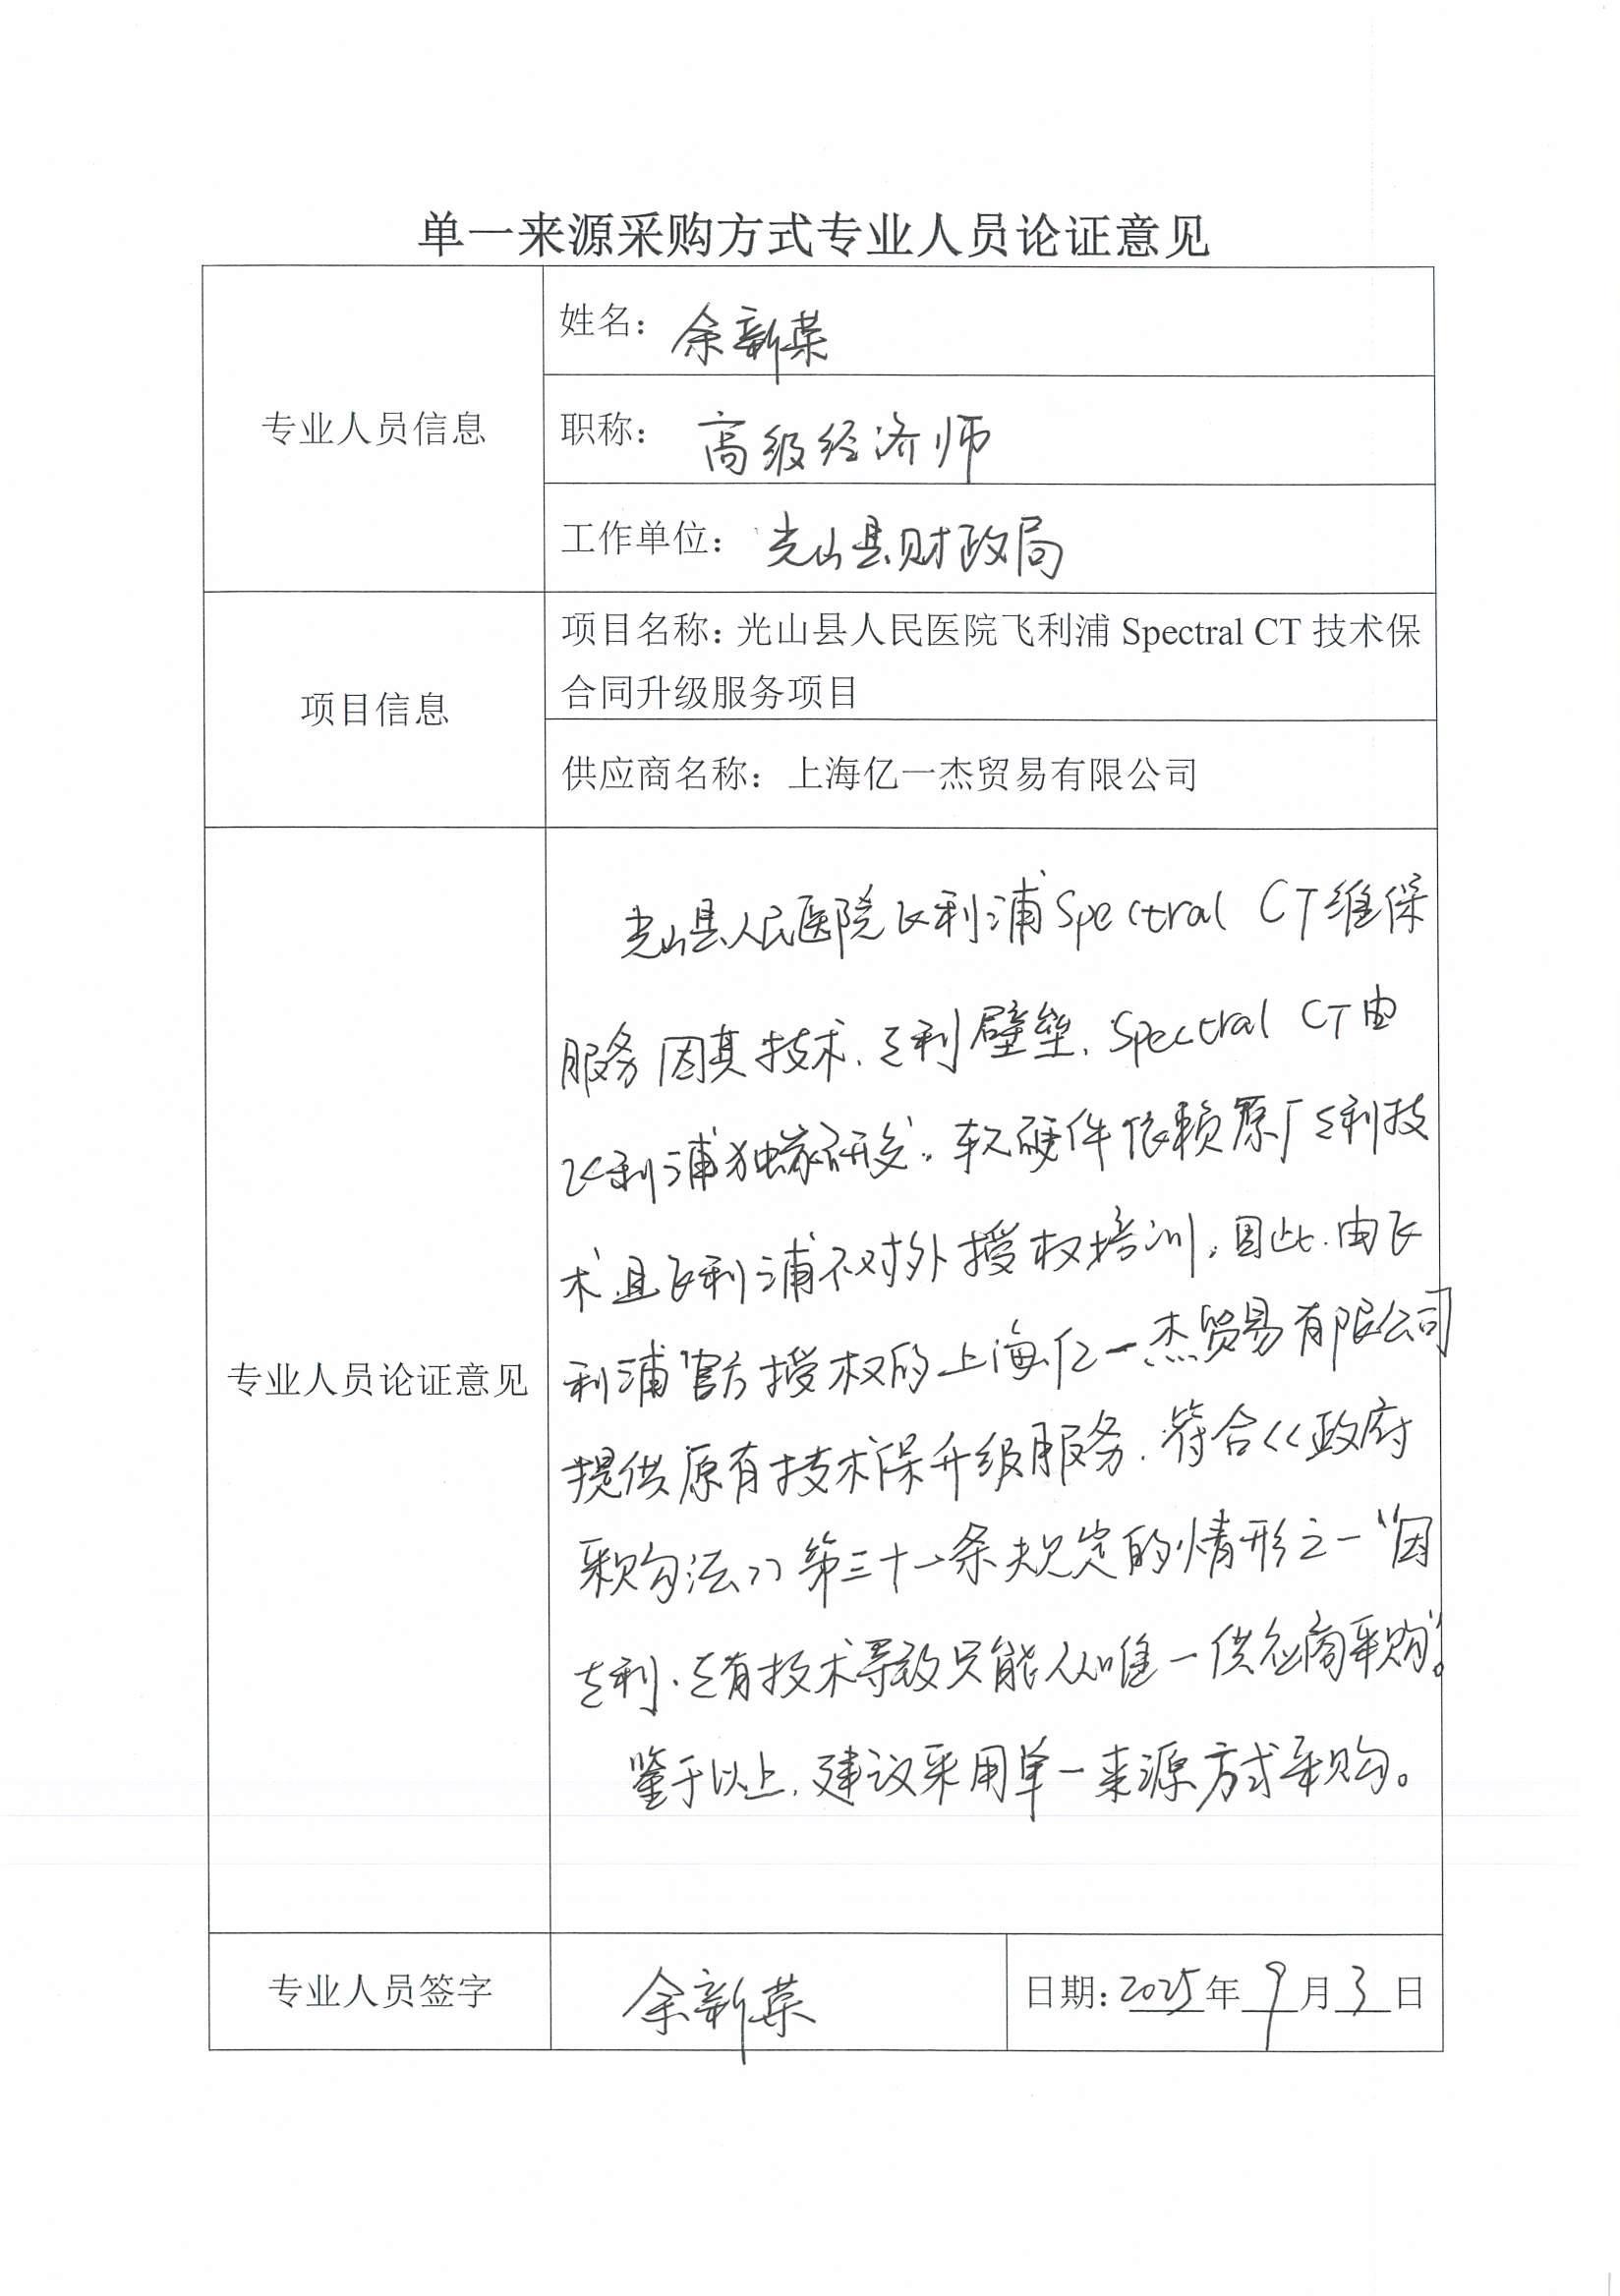 单一来源采购方式专业人员论证意见
专业人员信息
姓名：余新荣
职称：高级经济师
工作单位：光山县财政局
项目信息
项目名称：光山县人民医院飞利浦 Spectral CT 技术保
合同升级服务项目
供应商名称：上海亿一杰贸易有限公司
专业人员论证意见
光山县人民医院飞利浦 Spectral CT 维保
服务因其技术、专利壁垒，Spectral CT 由
飞利浦独家研发，软硬件依赖原厂专利技
术且飞利浦不对外授权培训，因此，由飞
利浦官方授权的上海亿一杰贸易有限公司
提供原有技术保升级服务，符合《政府
采购法》第三十一条规定的情形之一“因
专利、专有技术导致只能从唯一供应商采购”。
鉴于以上，建议采用单一来源方式采购。
专业人员签字
余新荣
日期：2025年9月3日